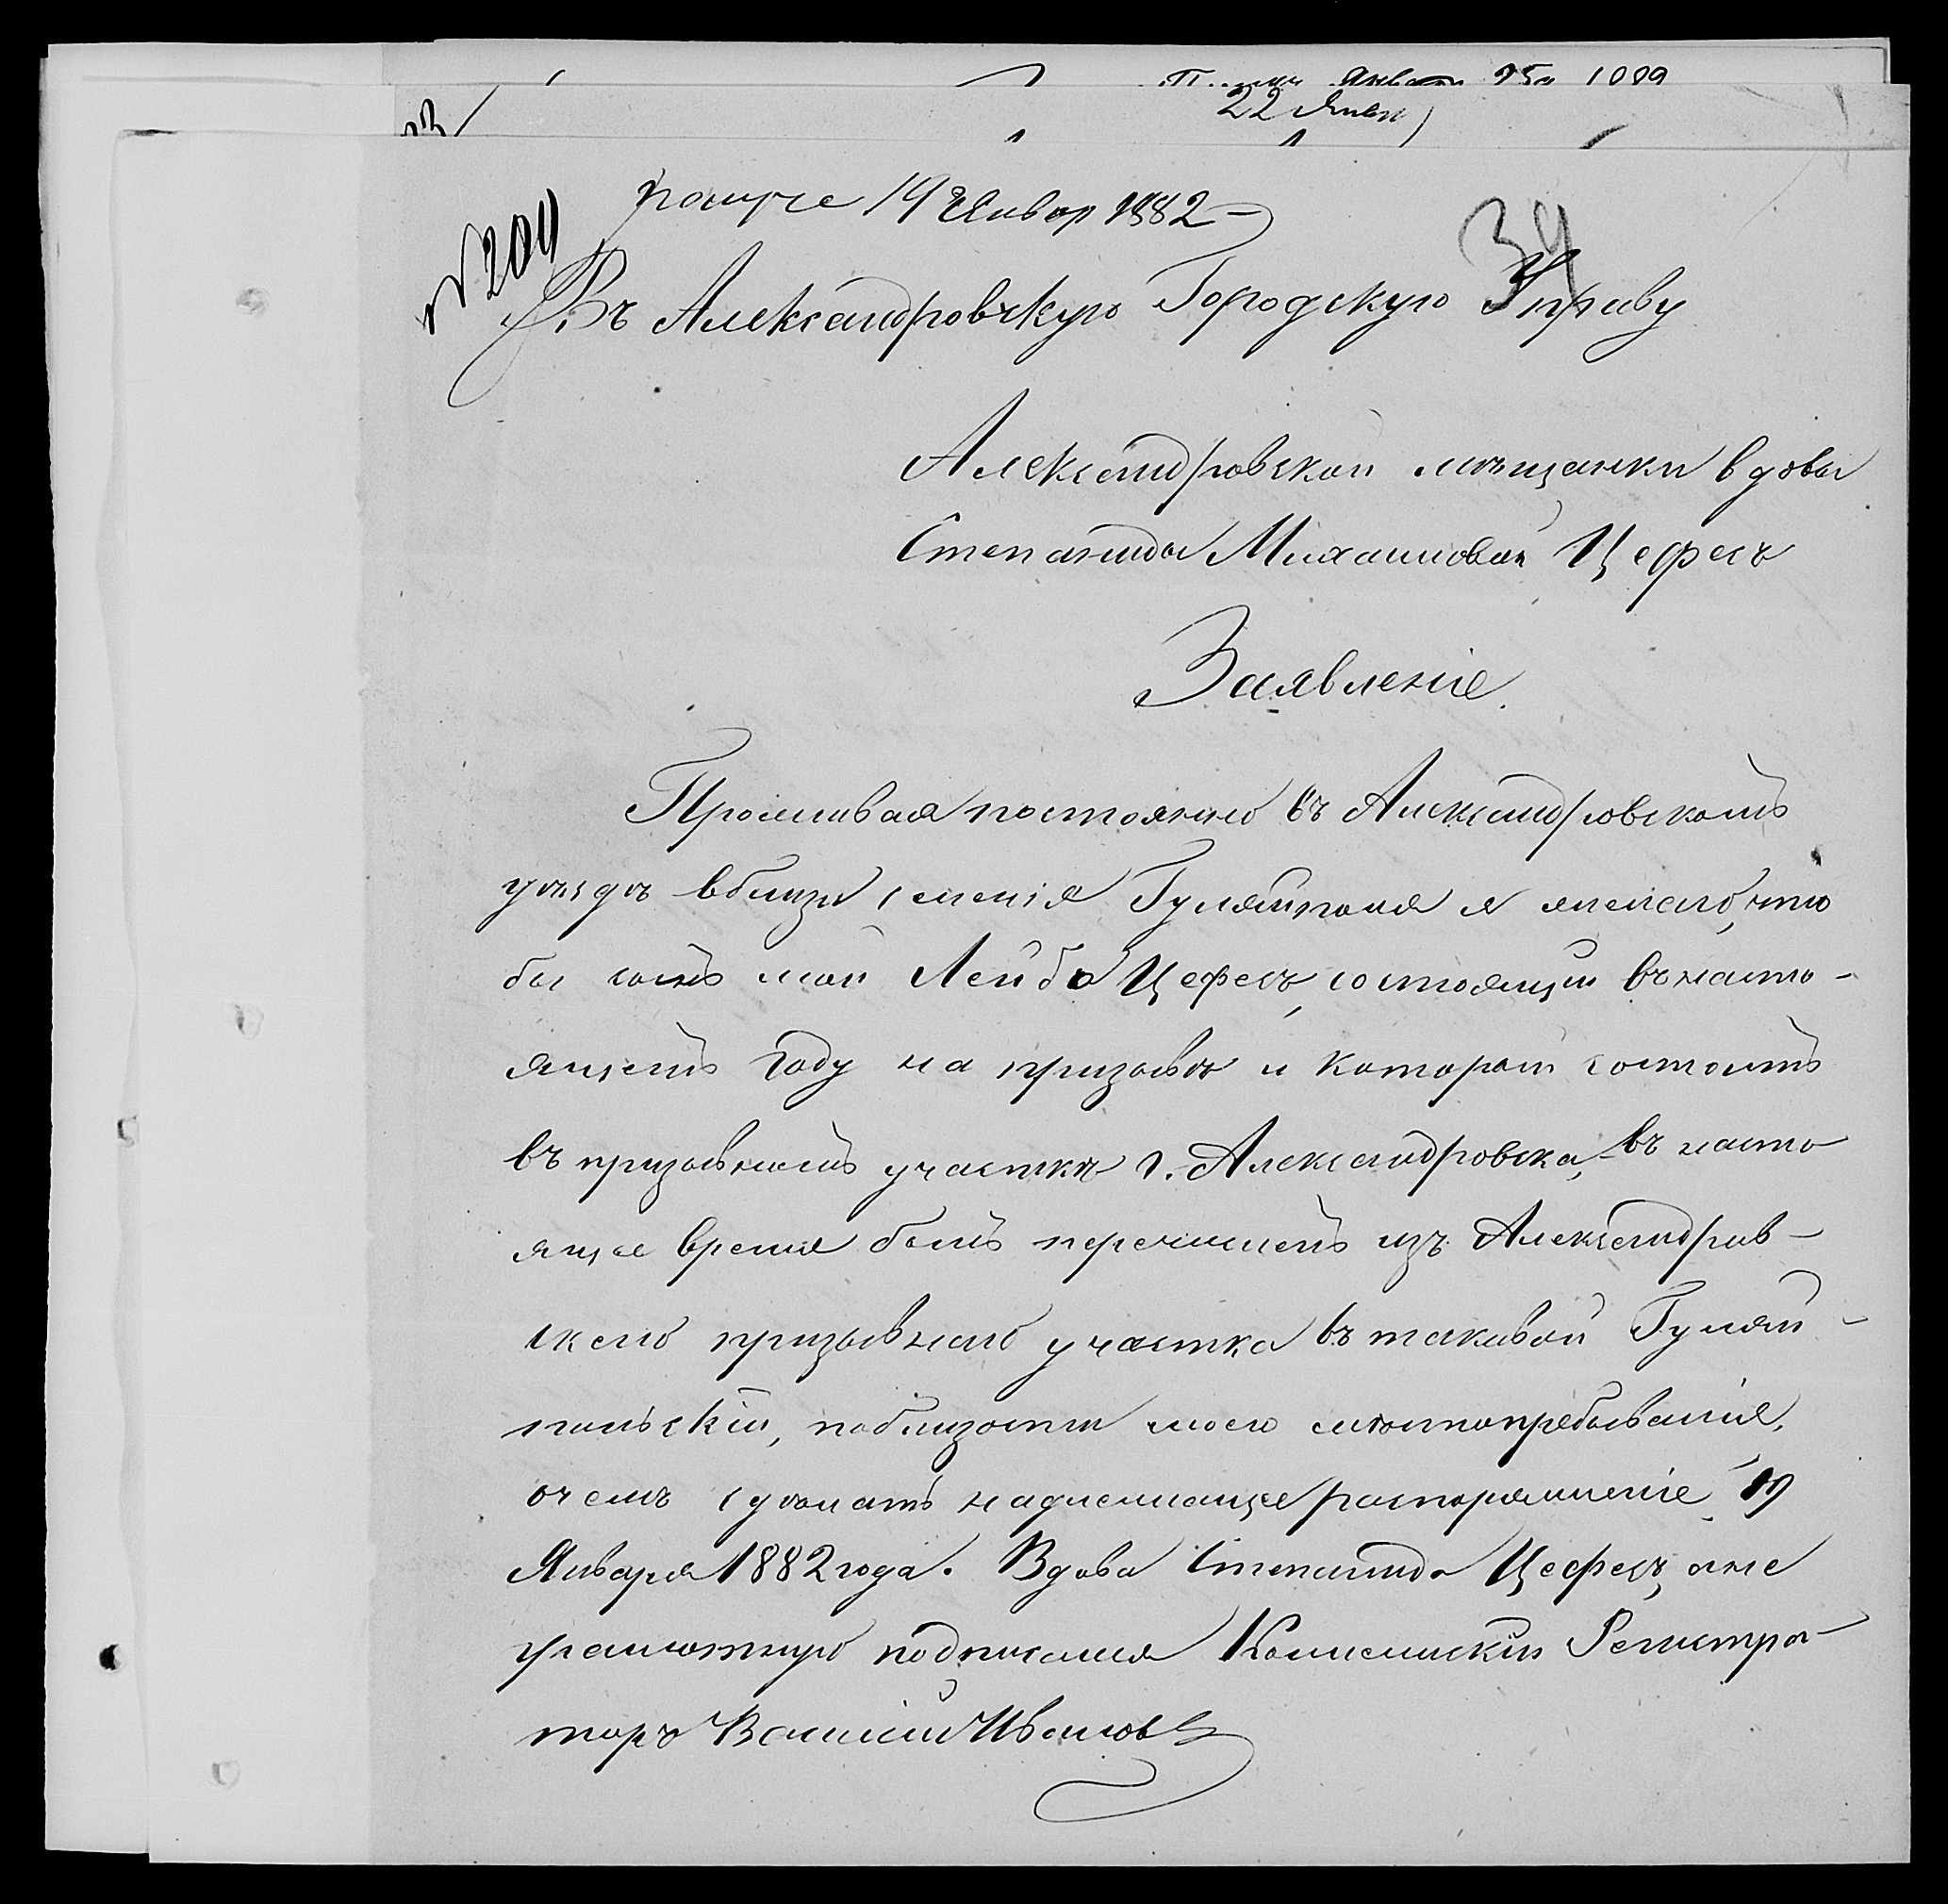 22 Янвр
№ 209
получе 19 Январ 1882
34
Въ Александровскую Городскую Управу
Александровской мѣщанки вдовы
Степаниды Михаиловой Цефесъ
Заявленіе.
Проживая постоянно въ Александровскомъ
уѣздѣ вблизи селенія Гуляйполя я желаю, что
бы сынъ мой Лейба Цефесъ, состоящій въ насто-
ящемъ году на призывѣ и который состоитъ
въ призывномъ участкѣ г. Александровска, въ насто
ящее время былъ перечисленъ изъ Александров-
скаго призывнаго участка въ таковой Гуляй-
польскій, поблизости моего мѣстопребыванія,
о чемъ сдѣлать надлежащее распоряженіе. 19
Января 1882 года. Вдова Степанида Цефесъ, а не
грамотную подписался Коллежскій Регистра-
торъ Василій Ивановъ